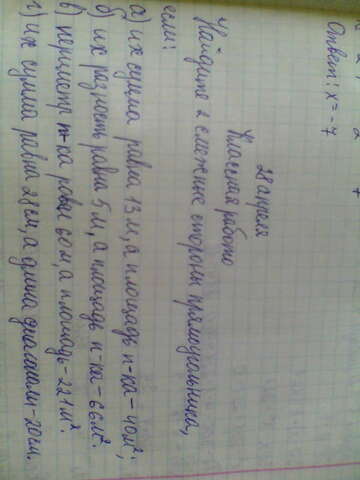 Ответ: x = -7
28 апреля
Классная работа
Найдите 2 смежные стороны прямоугольника,
если:
а) их сумма равна 13м, а площадь п-ка - 40м²;
б) их разность равна 5м, а площадь п-ка - 66м².
в) периметр п-ка равен 60м, а площадь - 221м².
г) их сумма равна 28см, а длина диагонали - 20см.